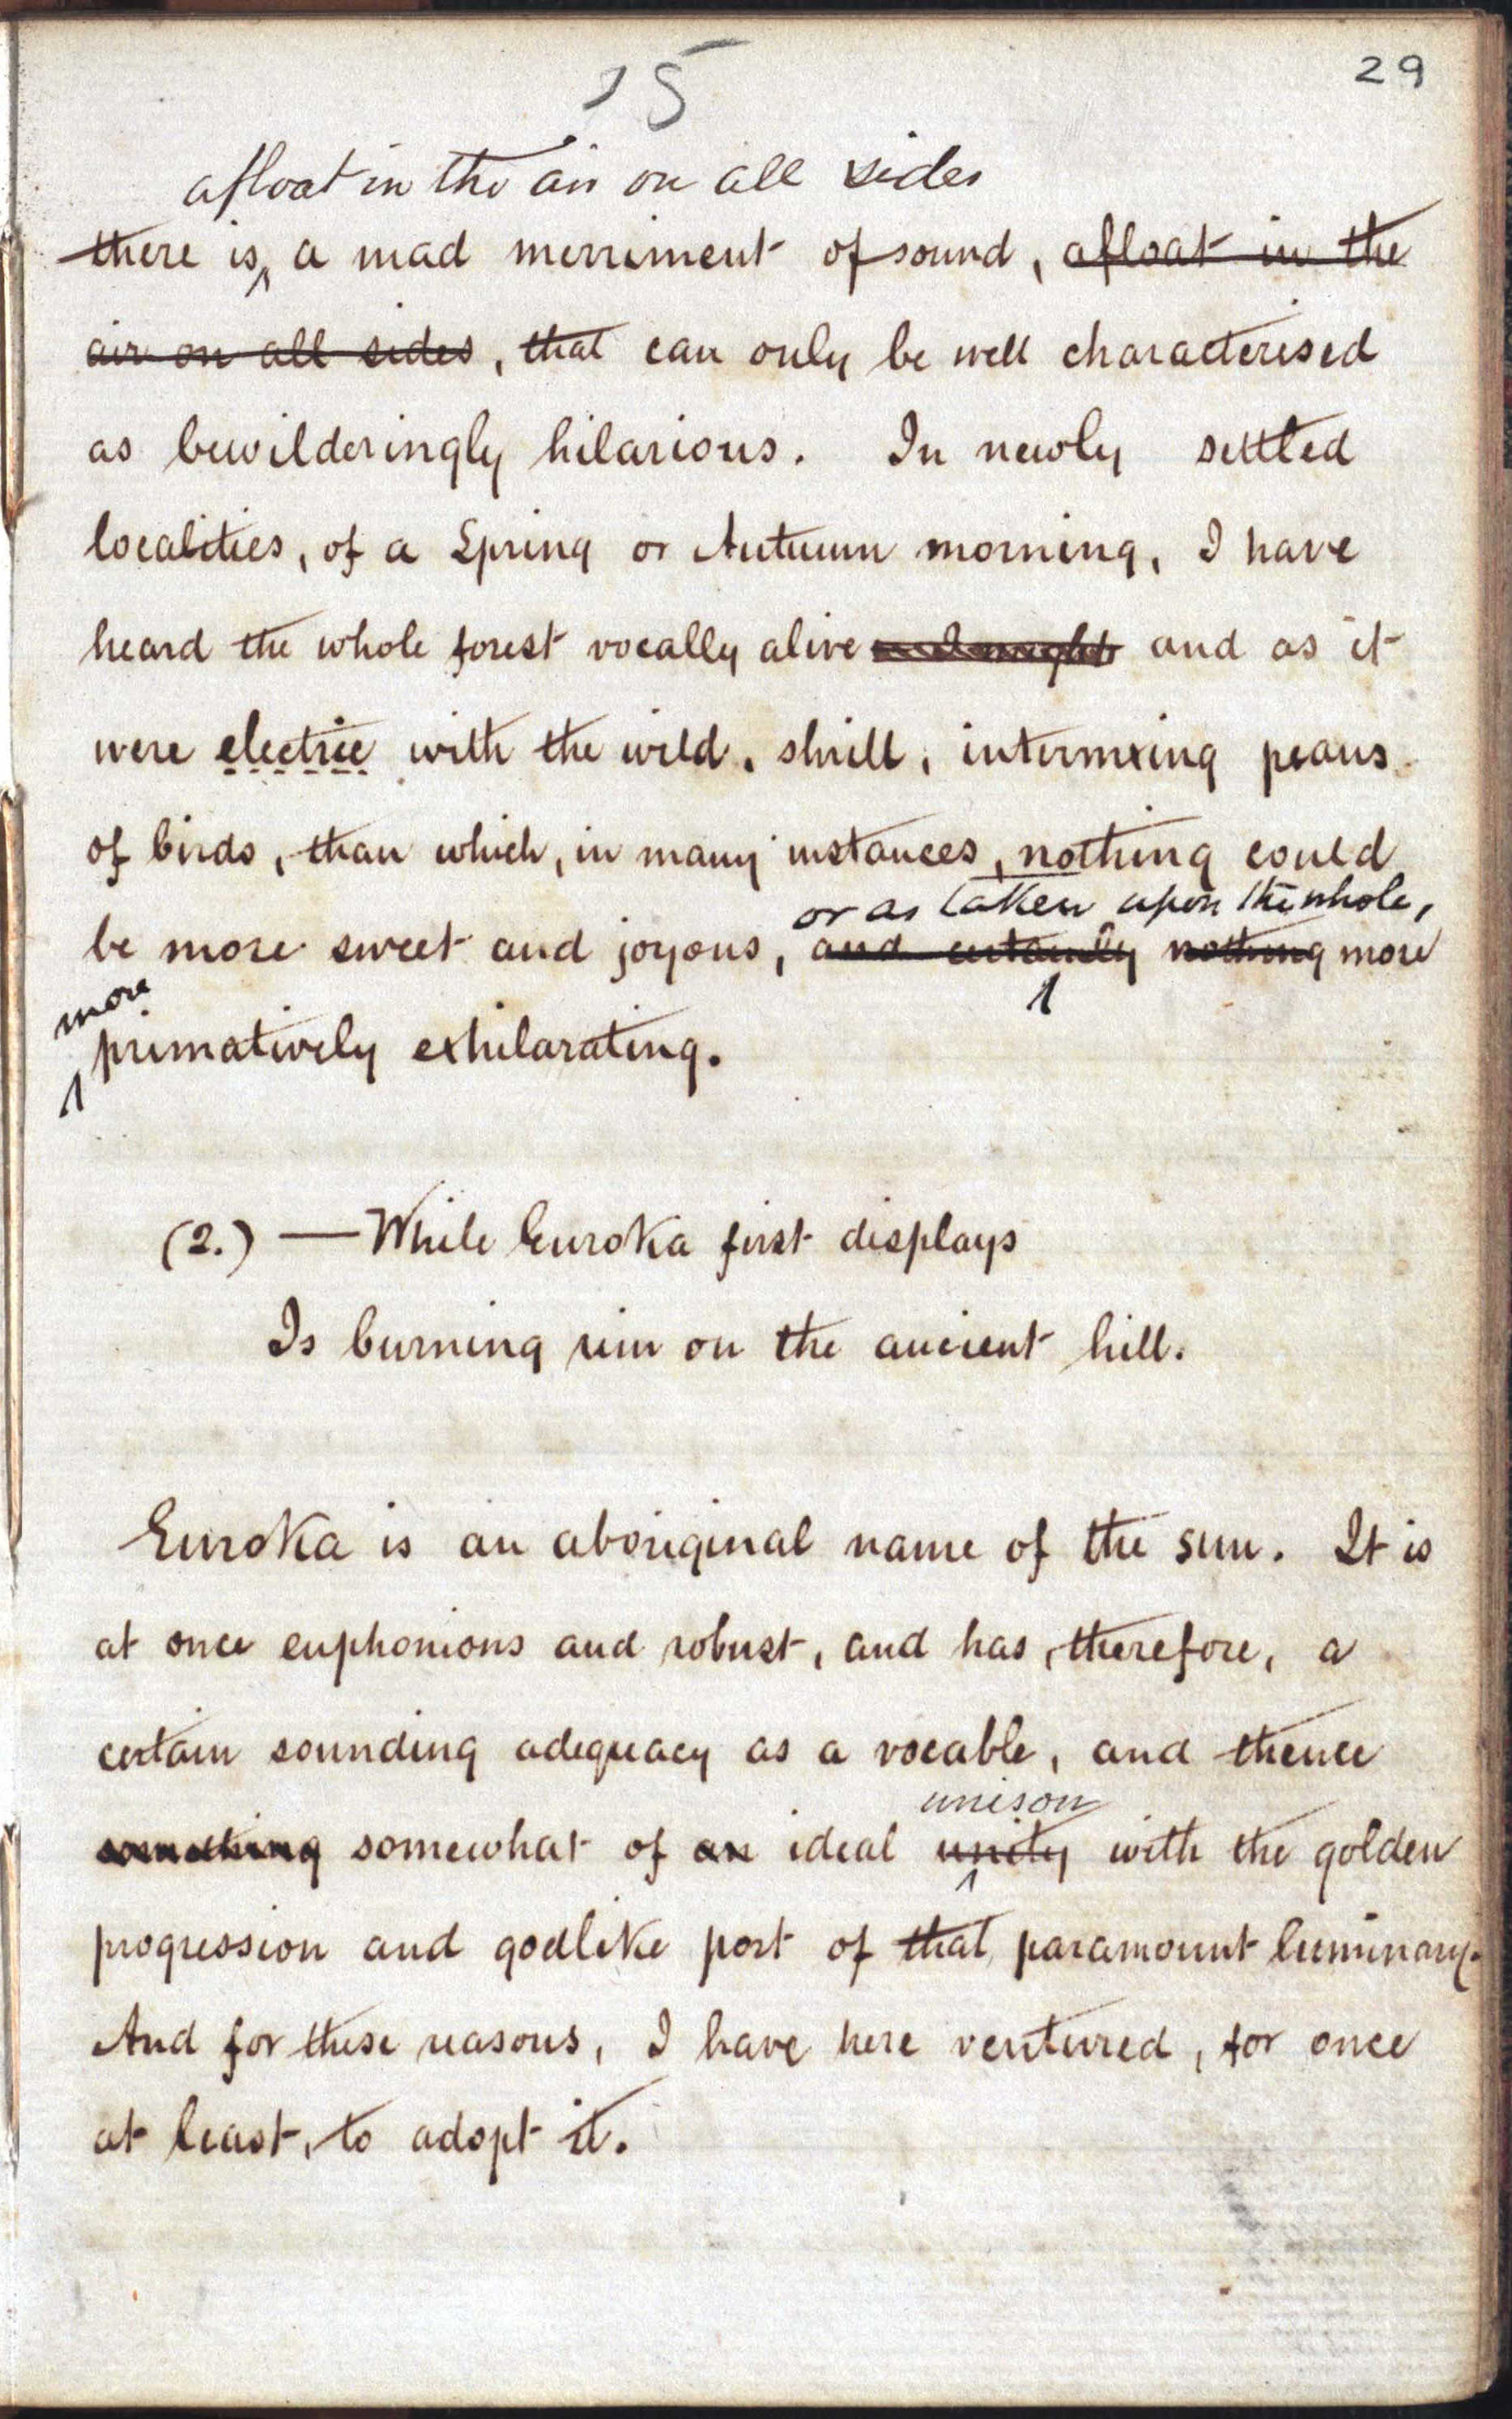 15
29
afloat in the air on all sides
there is a mad merriment of sound, afloat in the
air on all sides, that can only be well characterised
as bewilderingly hilarious. In newly settled
localities, of a Spring or Autumn morning, I have
heard the whole forest vocally alive and as it
were electric with the wild, shrill, intermixing peans
of birds, than which, in many instances, nothing could
or as taken upon the whole,
be more sweet and joyous, and certainly nothing more
more
primatively exhilarating.
(2.) — While Euroka first displays
Is burning rim on the ancient hill.
Euroka is an aboriginal name of the sun. It is
at once euphonious and robust, and has, therefore, a
certain sounding adequacy as a vocable, and thence
unison
something somewhat of an ideal unity with the golden
progression and godlike port of that paramount luminary.
And for these reasons, I have here ventured, for once
at least, to adopt it.